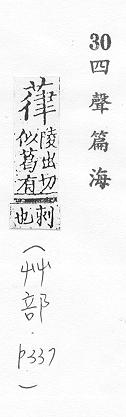 30四聲篇海
葎
陵出切
似葛有
刺
也
(艸部.p337)